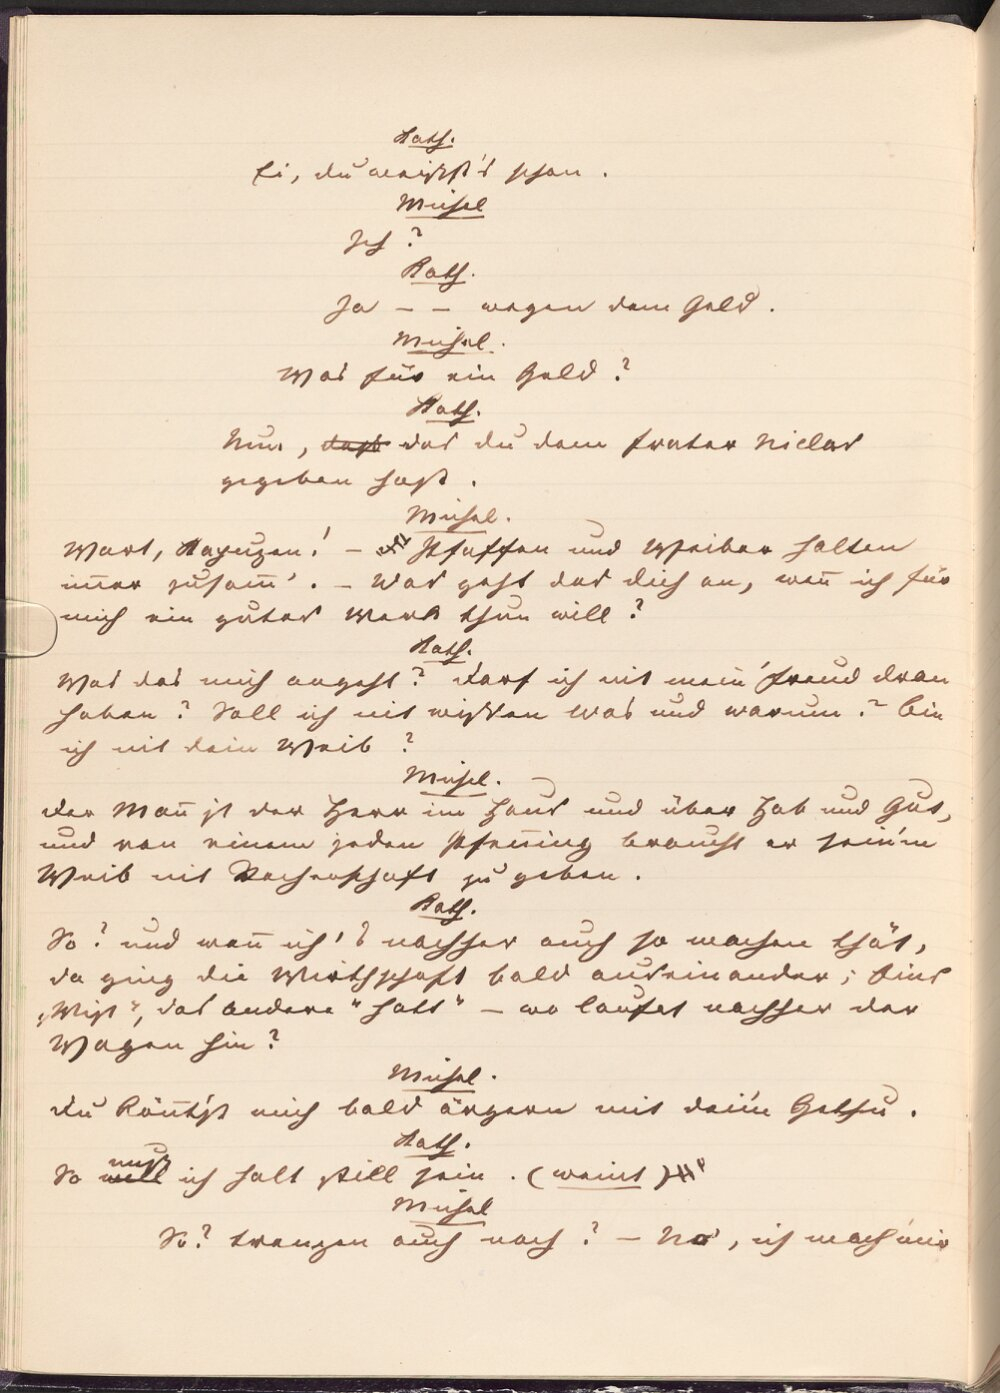 Kath.
Ei, du weißt's schon.
Michel
Ich?
Kath.
Ja – – wegen dem Geld.
Michel.
Was für ein Geld?
Kath.
Nun, daß das du dem Frater Niclas
gegeben hast.
Michel.
Wart, Kapuzen! – Pfaffen und Weiber halten
im̅er zusam̅'. – Was geht das dich an, wen̅ ich für
mich ein gutes Werk thun will?
Kath.
Was das mich angeht? Darf ich nit mein' Freud dran
haben? Soll ich nit wissen was und warum? Bin
ich nit dein Weib?
Michel.
Der Man̅ ist der Herr im Haus und über Hab und Gut,
und von einem jeden Pfen̅ing braucht er sein'm
Weib nit Rechenschaft zu geben.
Kath.
So? und wen̅ ich's nachher auch so machen thät,
da ging die Wirthschaft bald auseinander; Eins
„Wist", das andere "hott" – wo laufet nachher der
Wagen hin?
Michel.
Du kön̅t'st mich bald ärgern mit dei'm Gethu.
Kath.
So will muß ich halt still sein. (weint)
Michel
So? trenzen auch noch? – Na, ich mach' mir